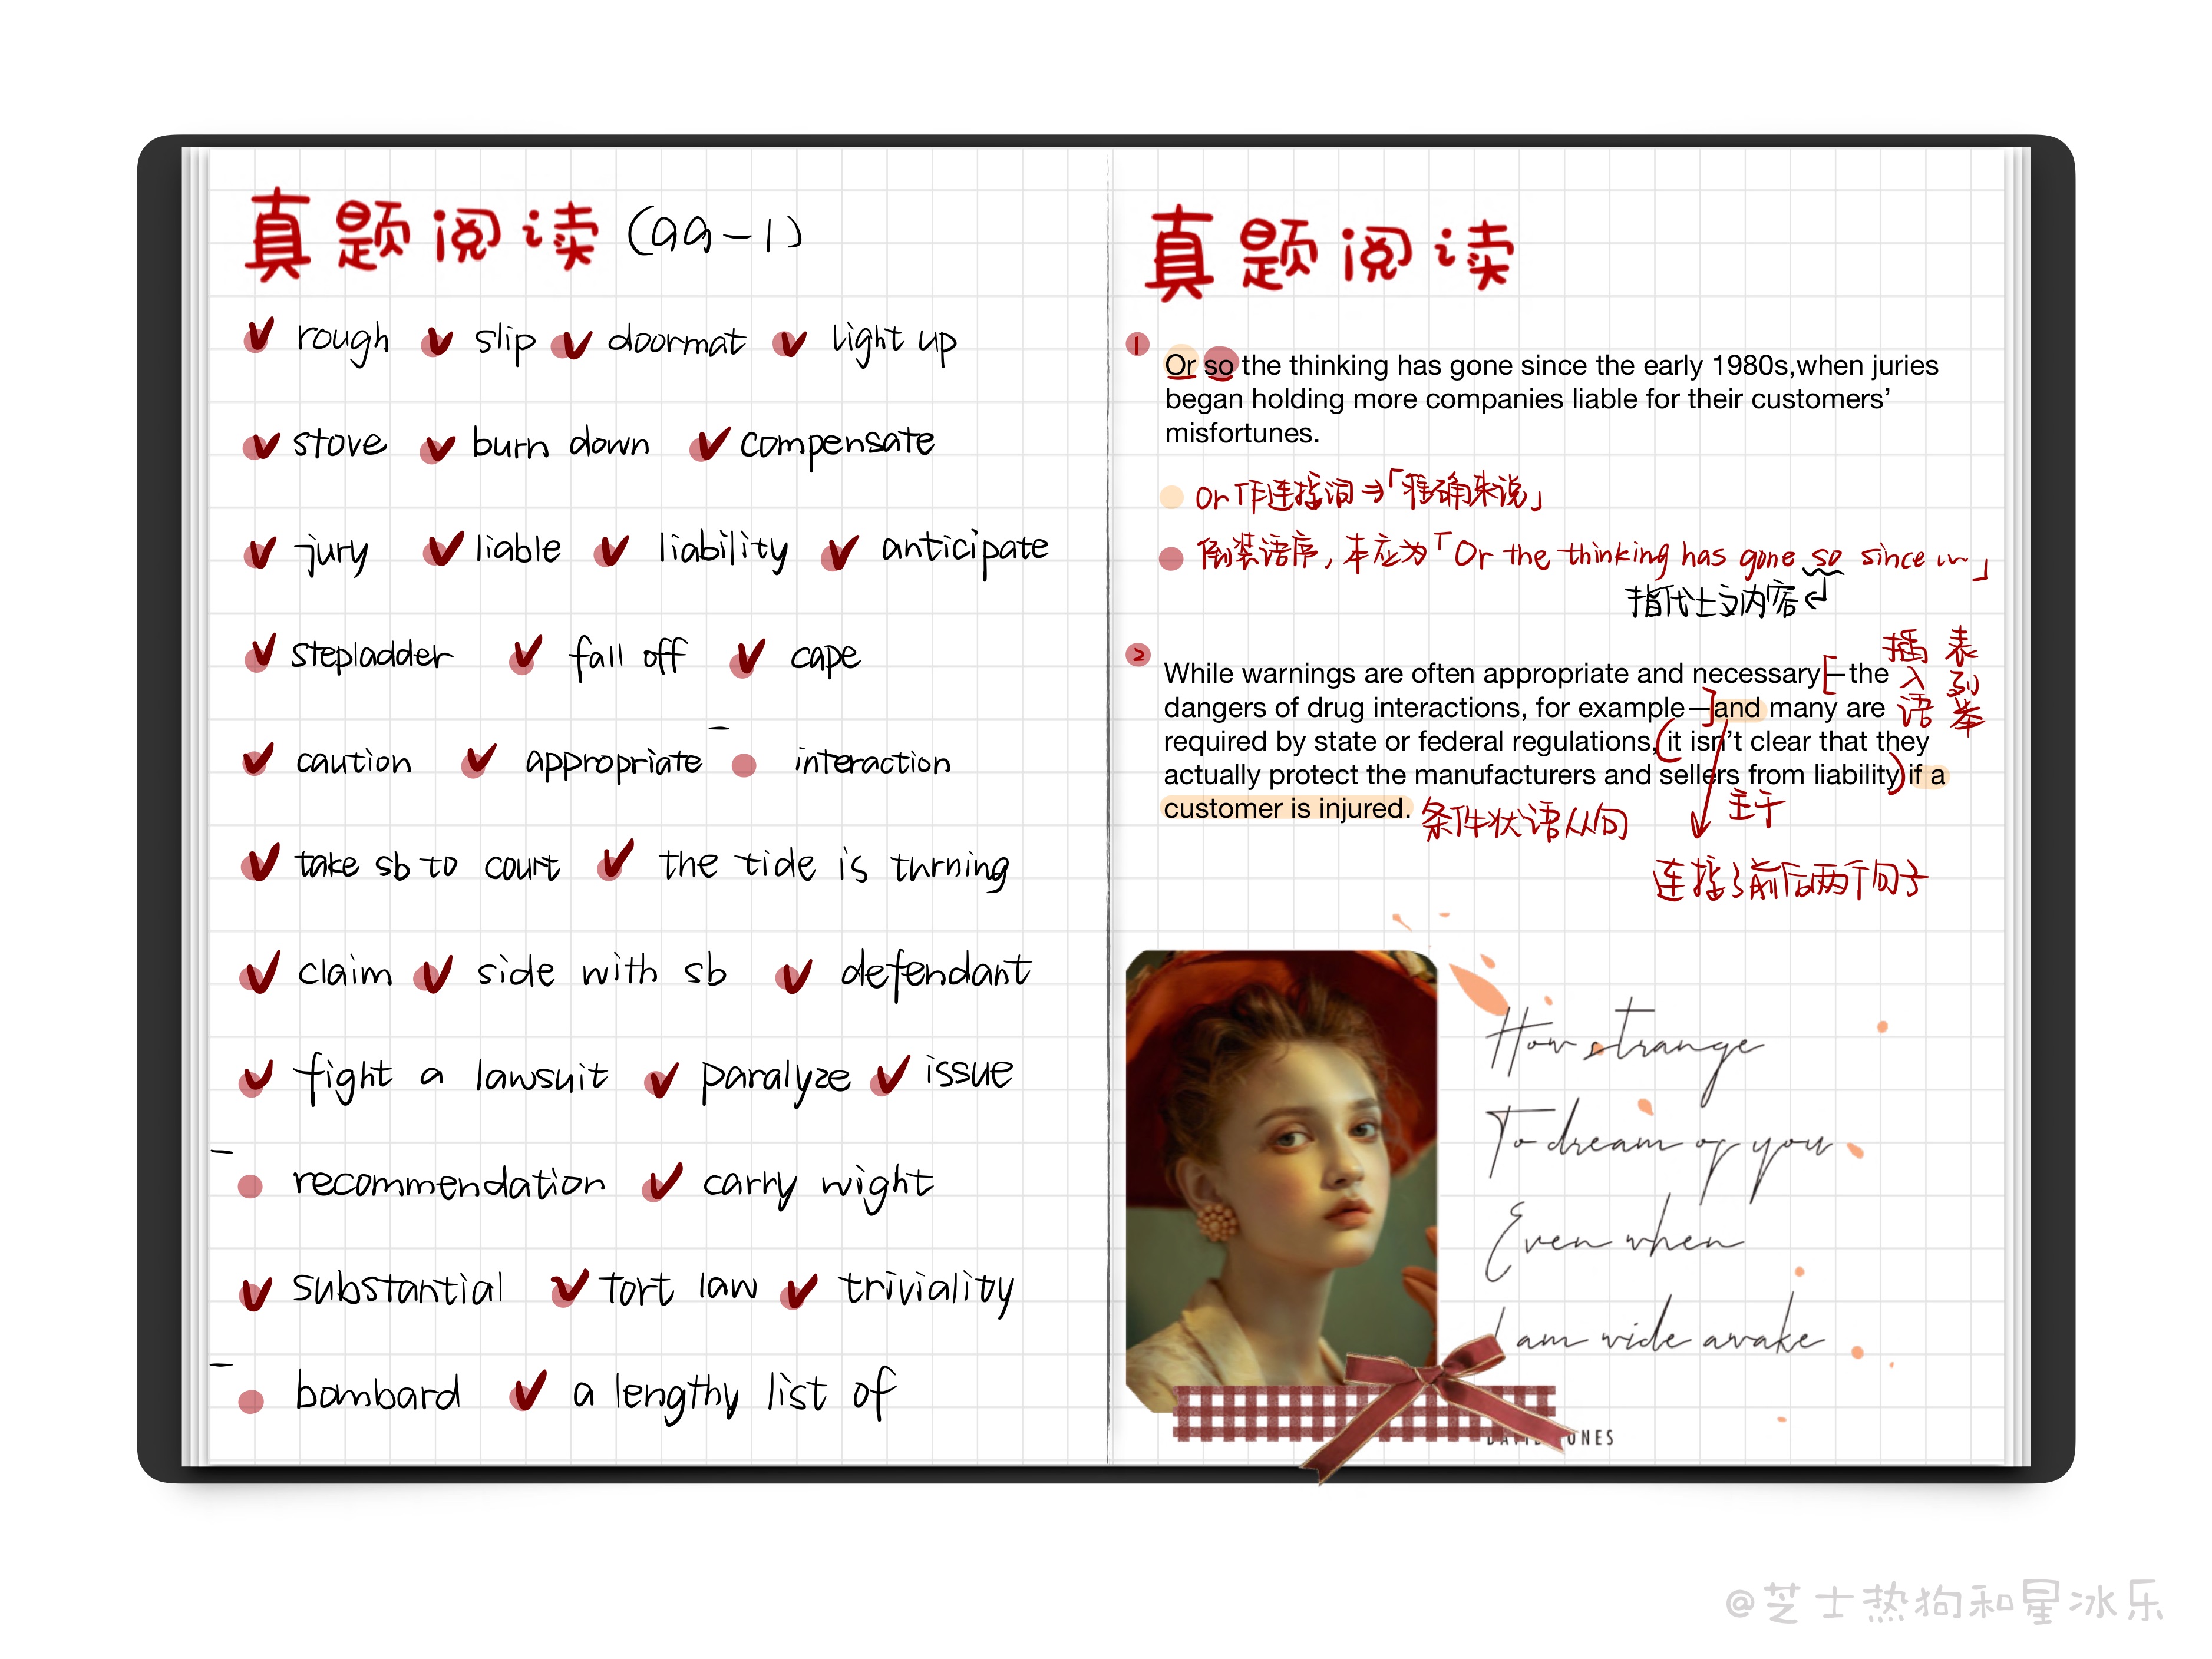 真题阅读 (99-1)
rough slip doormat light up
stove burn down compensate
jury liable liability anticipate
stepladder fall off cape
caution appropriate interaction
take sb to court the tide is turning
claim side with sb defendant
fight a lawsuit paralyze issue
recommendation carry wight
substantial tort law triviality
bombard a lengthy list of
真题阅读
1
Or so the thinking has gone since the early 1980s,when juries
began holding more companies liable for their customers’
misfortunes.
Or 作连接词⇒「准确来说」
倒装语序，本应为「Or the thinking has gone so since ...」
指代上文内容
2
While warnings are often appropriate and necessary—the
dangers of drug interactions, for example—and many are
required by state or federal regulations, it isn’t clear that they
actually protect the manufacturers and sellers from liability if a
customer is injured.
插入语
表列举
条件状语从句
主干
连接了前后两个句子
How strange
To dream of you
Even when
I am wide awake
@芝士热狗和星冰乐